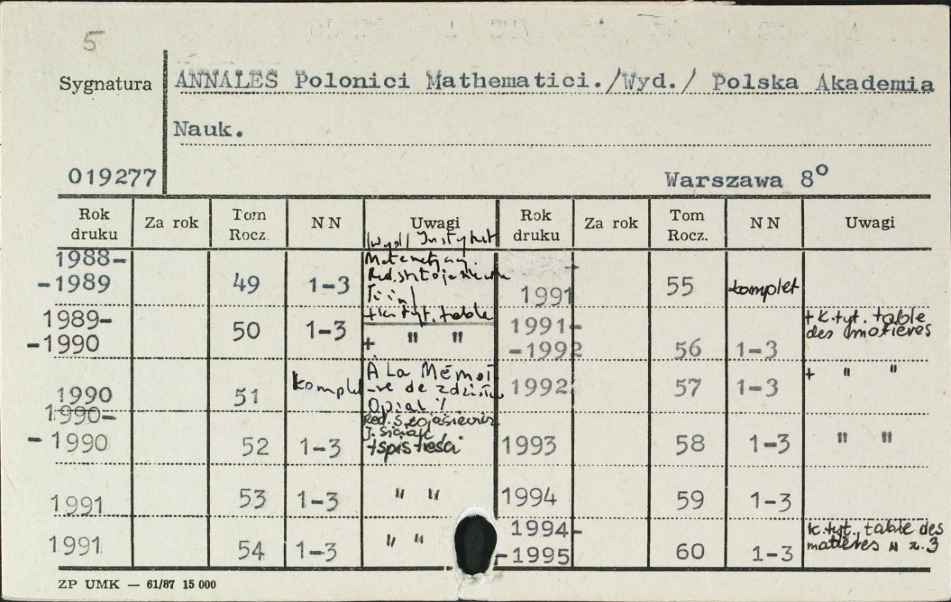 5
Sygnatura ANNALES Polonici Mathematici./Wyd./ Polska Akademia
Nauk.
019277 Warszawa 8°
Rok druku Za rok Tom Rocz. NN Uwagi Rok druku Za rok Tom Rocz. NN Uwagi
1988-
-1989 49 1-3 /Wyd/ Instytut
+ k. tyt. table
1991 55 komplet
1989-
-1990 50 1-3 + " "
1991-
-1992 56 1-3 + k.tyt. table
des matières
1990 51 komplet À La Mémoi
-re de Zdzisław
Opial /
1992 57 1-3 + " "
1990-
-1990 52 1-3 Red. S. Łojasiewicz
J. Siciak
+spis treści
1993 58 1-3 " "
1991 53 1-3 " "
1994 59 1-3
1991 54 1-3 " "
1994-
-1995 60 1-3 k.tyt., table des
matières w z.3
ZP UMK — 61/87 15 000